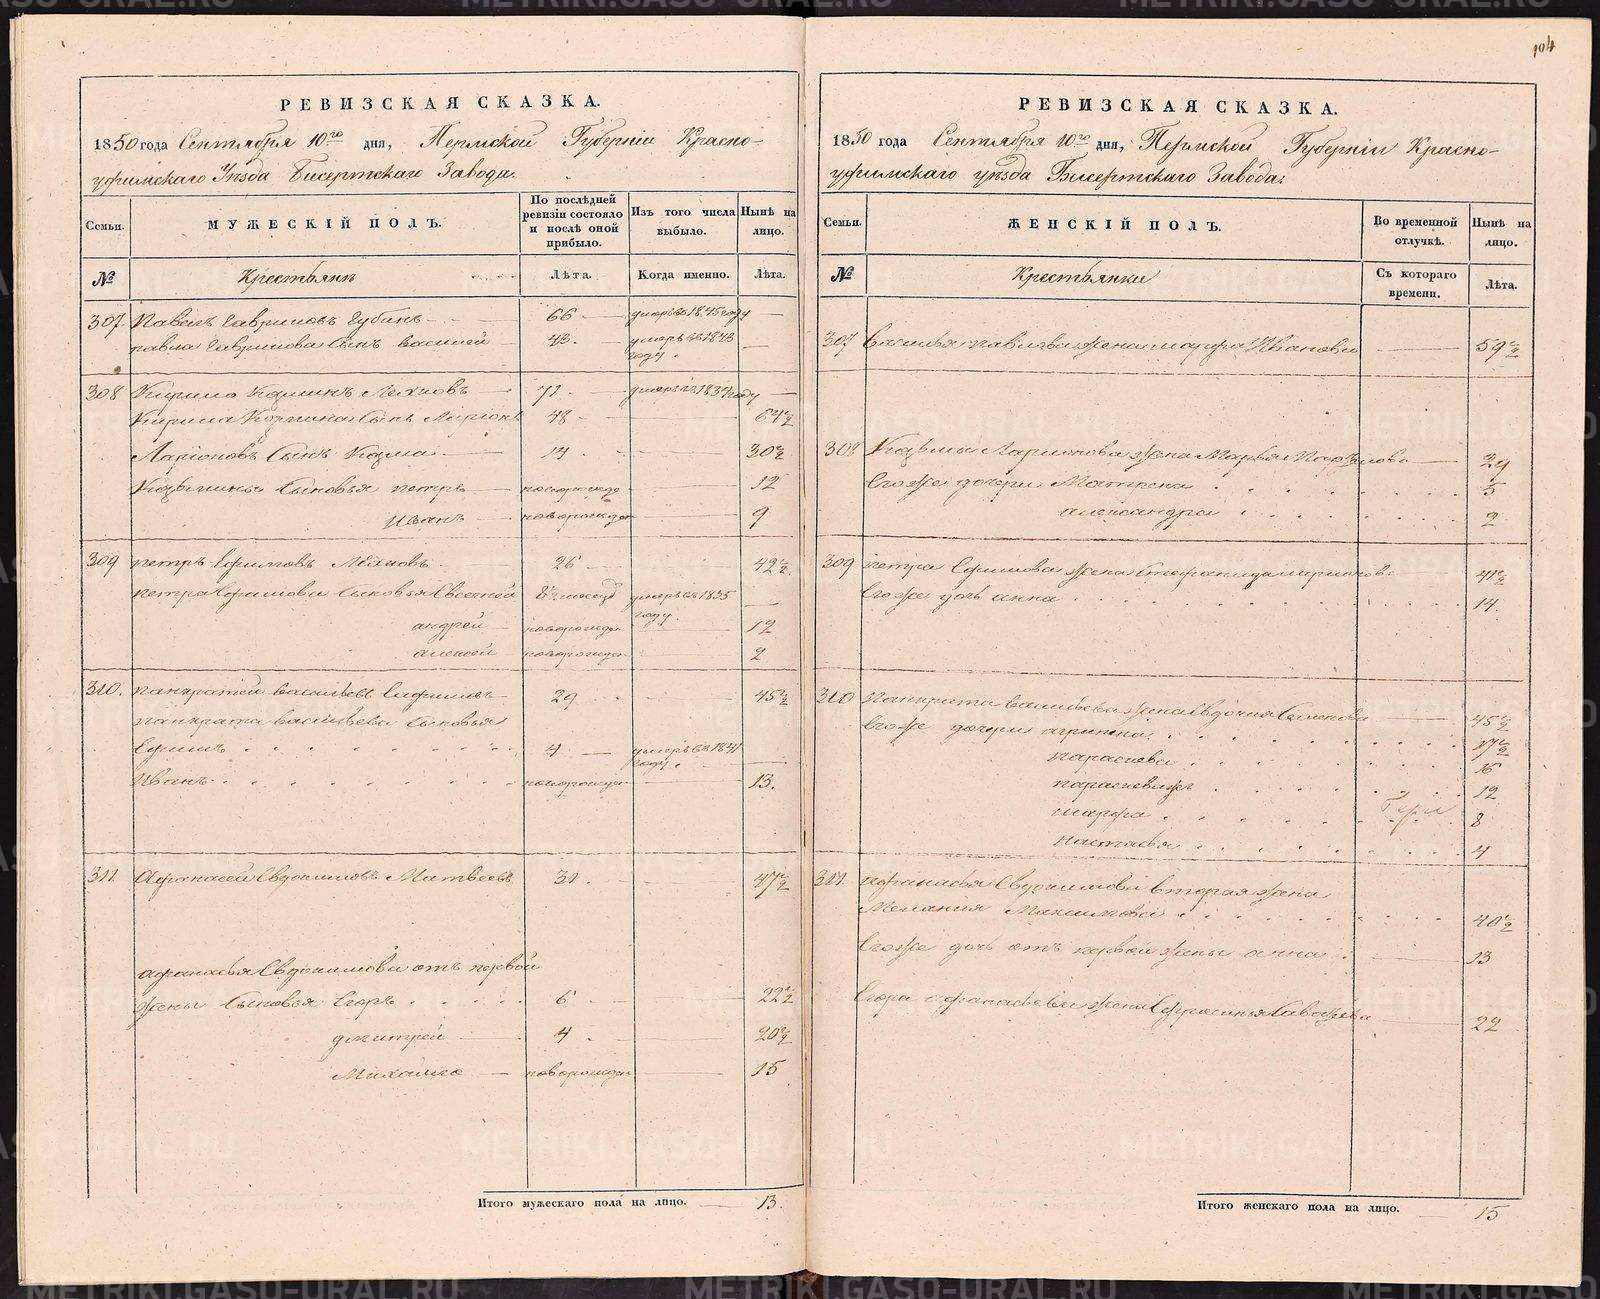 104
РЕВИЗСКАЯ СКАЗКА.
1850 года Сентября 10го дня, Пермской Губерніи Красно-
уфимскаго Уѣзда Бисертскаго Завода.
Семьи.
МУЖЕСКІЙ ПОЛЪ.
По послѣдней ревизіи состояло и послѣ оной прибыло.
Изъ того числа выбыло.
Нынѣ на лицо.
№
Крестьянъ
Лѣта.
Когда именно.
Лѣта.
307 Павелъ Гавриловъ Губинъ 66 умеръ въ 1845 году
павла Гаврилова Сынъ василей 43. умеръ въ 1848 году
308 Кирило Козминъ Лѣхновъ 71 умеръ въ 1834 году
Кирила Козмина Сынъ Ларіонъ 48 64 1/2
Ларіоновъ Сынъ Козма 14 30 1/2
Козьмины Сыновья петръ новорожден 12
Иванъ новорожден 9
309 петръ Ефимовъ Лѣхновъ 26 42 1/2
петра Ефимова Сыновья Евсегней 8 1/2 умеръ въ 1835 году.
андрей новорожден 12
алексей новорожден 2
310. панкратей васильевъ 29 45 1/2
панкрата васильева Сыновья
Ефимъ 4 умеръ въ 1841 году.
Иванъ новорожден 13.
311. Афанасей Евдокимовъ Матвеевъ 31 47 1/2
афанасья Евдокимова отъ первой
жены Сыновья Егоръ 6 22 1/2
дмитрей 4 20 1/2
Михайло новорожден 15
Итого мужескаго пола на лицо. 13.
РЕВИЗСКАЯ СКАЗКА.
1850 года Сентября 10го дня, Пермской Губерніи Красно-
уфимскаго уѣзда Бисертскаго Завода.
Семьи.
ЖЕНСКІЙ ПОЛЪ.
Во временной отлучкѣ.
Нынѣ на лицо.
№
Крестьянки
Съ котораго времени.
Лѣта.
307 Василья павлова жена марфа Иванова 59 1/2
308 Козьмы Ларионова жена Марья 29
Егоже дочери Матрена 5
александра 2
309 петра Ефимова жена Стефанида ларионова 41 1/2
Егоже дочь анна 14.
310 Панкрата васильева жена Евдокия Семенова 45 1/2
Егоже дочери агрипена 17 1/2
парасковья 16
парасковья ж 12
марфа 8
настасья 4
311. афанасья Евдокимова вторая жена
Мелания Максимова 40 1/2
Егоже дочь отъ первой жены анна 13
Егора афанасьева жена Ефросинья Савельева 22
Итого женскаго пола на лицо. 15
METRIKI.GASO-URAL.RU